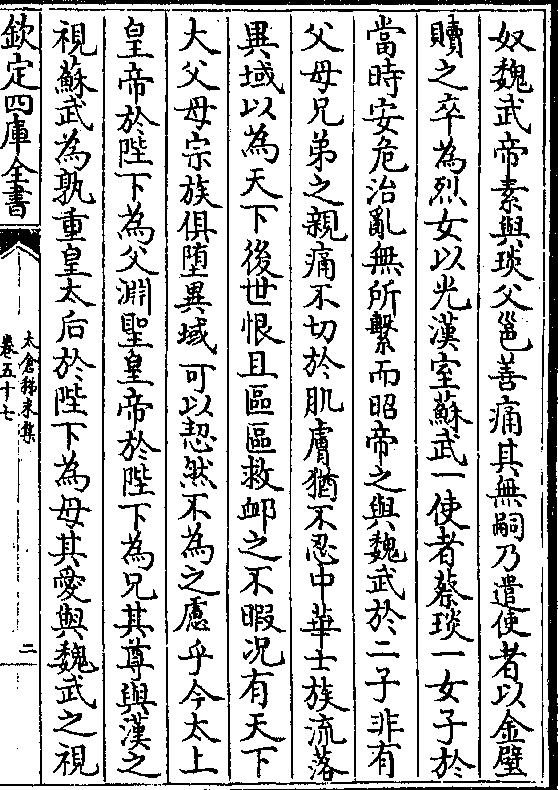 奴魏武帝素與琰父邕善痛其無嗣乃遣使者以金璧
贖之卒為烈女以光漢室蘇武一使者蔡琰一女子於
當時安危治亂無所繫而昭帝之與魏武於二子非有
父母兄弟之親痛不切於肌膚猶不忍中華士族流落
異域以為天下後世恨且區區救卹之不暇况有天下
大父母宗族俱堕異域可以恝然不為之慮乎今太上
皇帝於陛下為父淵聖皇帝於陛下為兄其尊與漢之
視蘇武為孰重皇太后於陛下為母其愛與魏武之視
欽定四庫全書
太倉稊米集
卷五十七
二